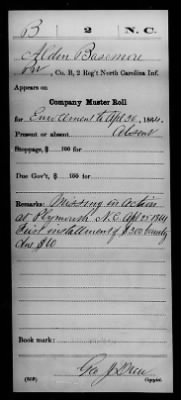 B 2 N.C.
Alden Basemore
Pvt, Co. B, 2 Reg't North Carolina Inf.
Appears on
Company Muster Roll
for Enrollment to Apr 30, 1864.
Present or absent Absent
Stoppage, $ 100 for
Due Gov't, $ 100 for
Remarks: Missing in action
at Plymouth N.C. Apr 20 1864
First installment of $300 bounty
due $60
Book mark:
Geo J Drew
(858) Copyist.